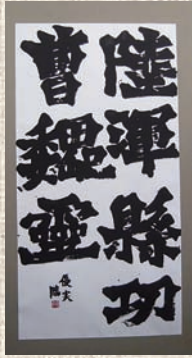 陸渾縣功
曹魏靈
優炎臨